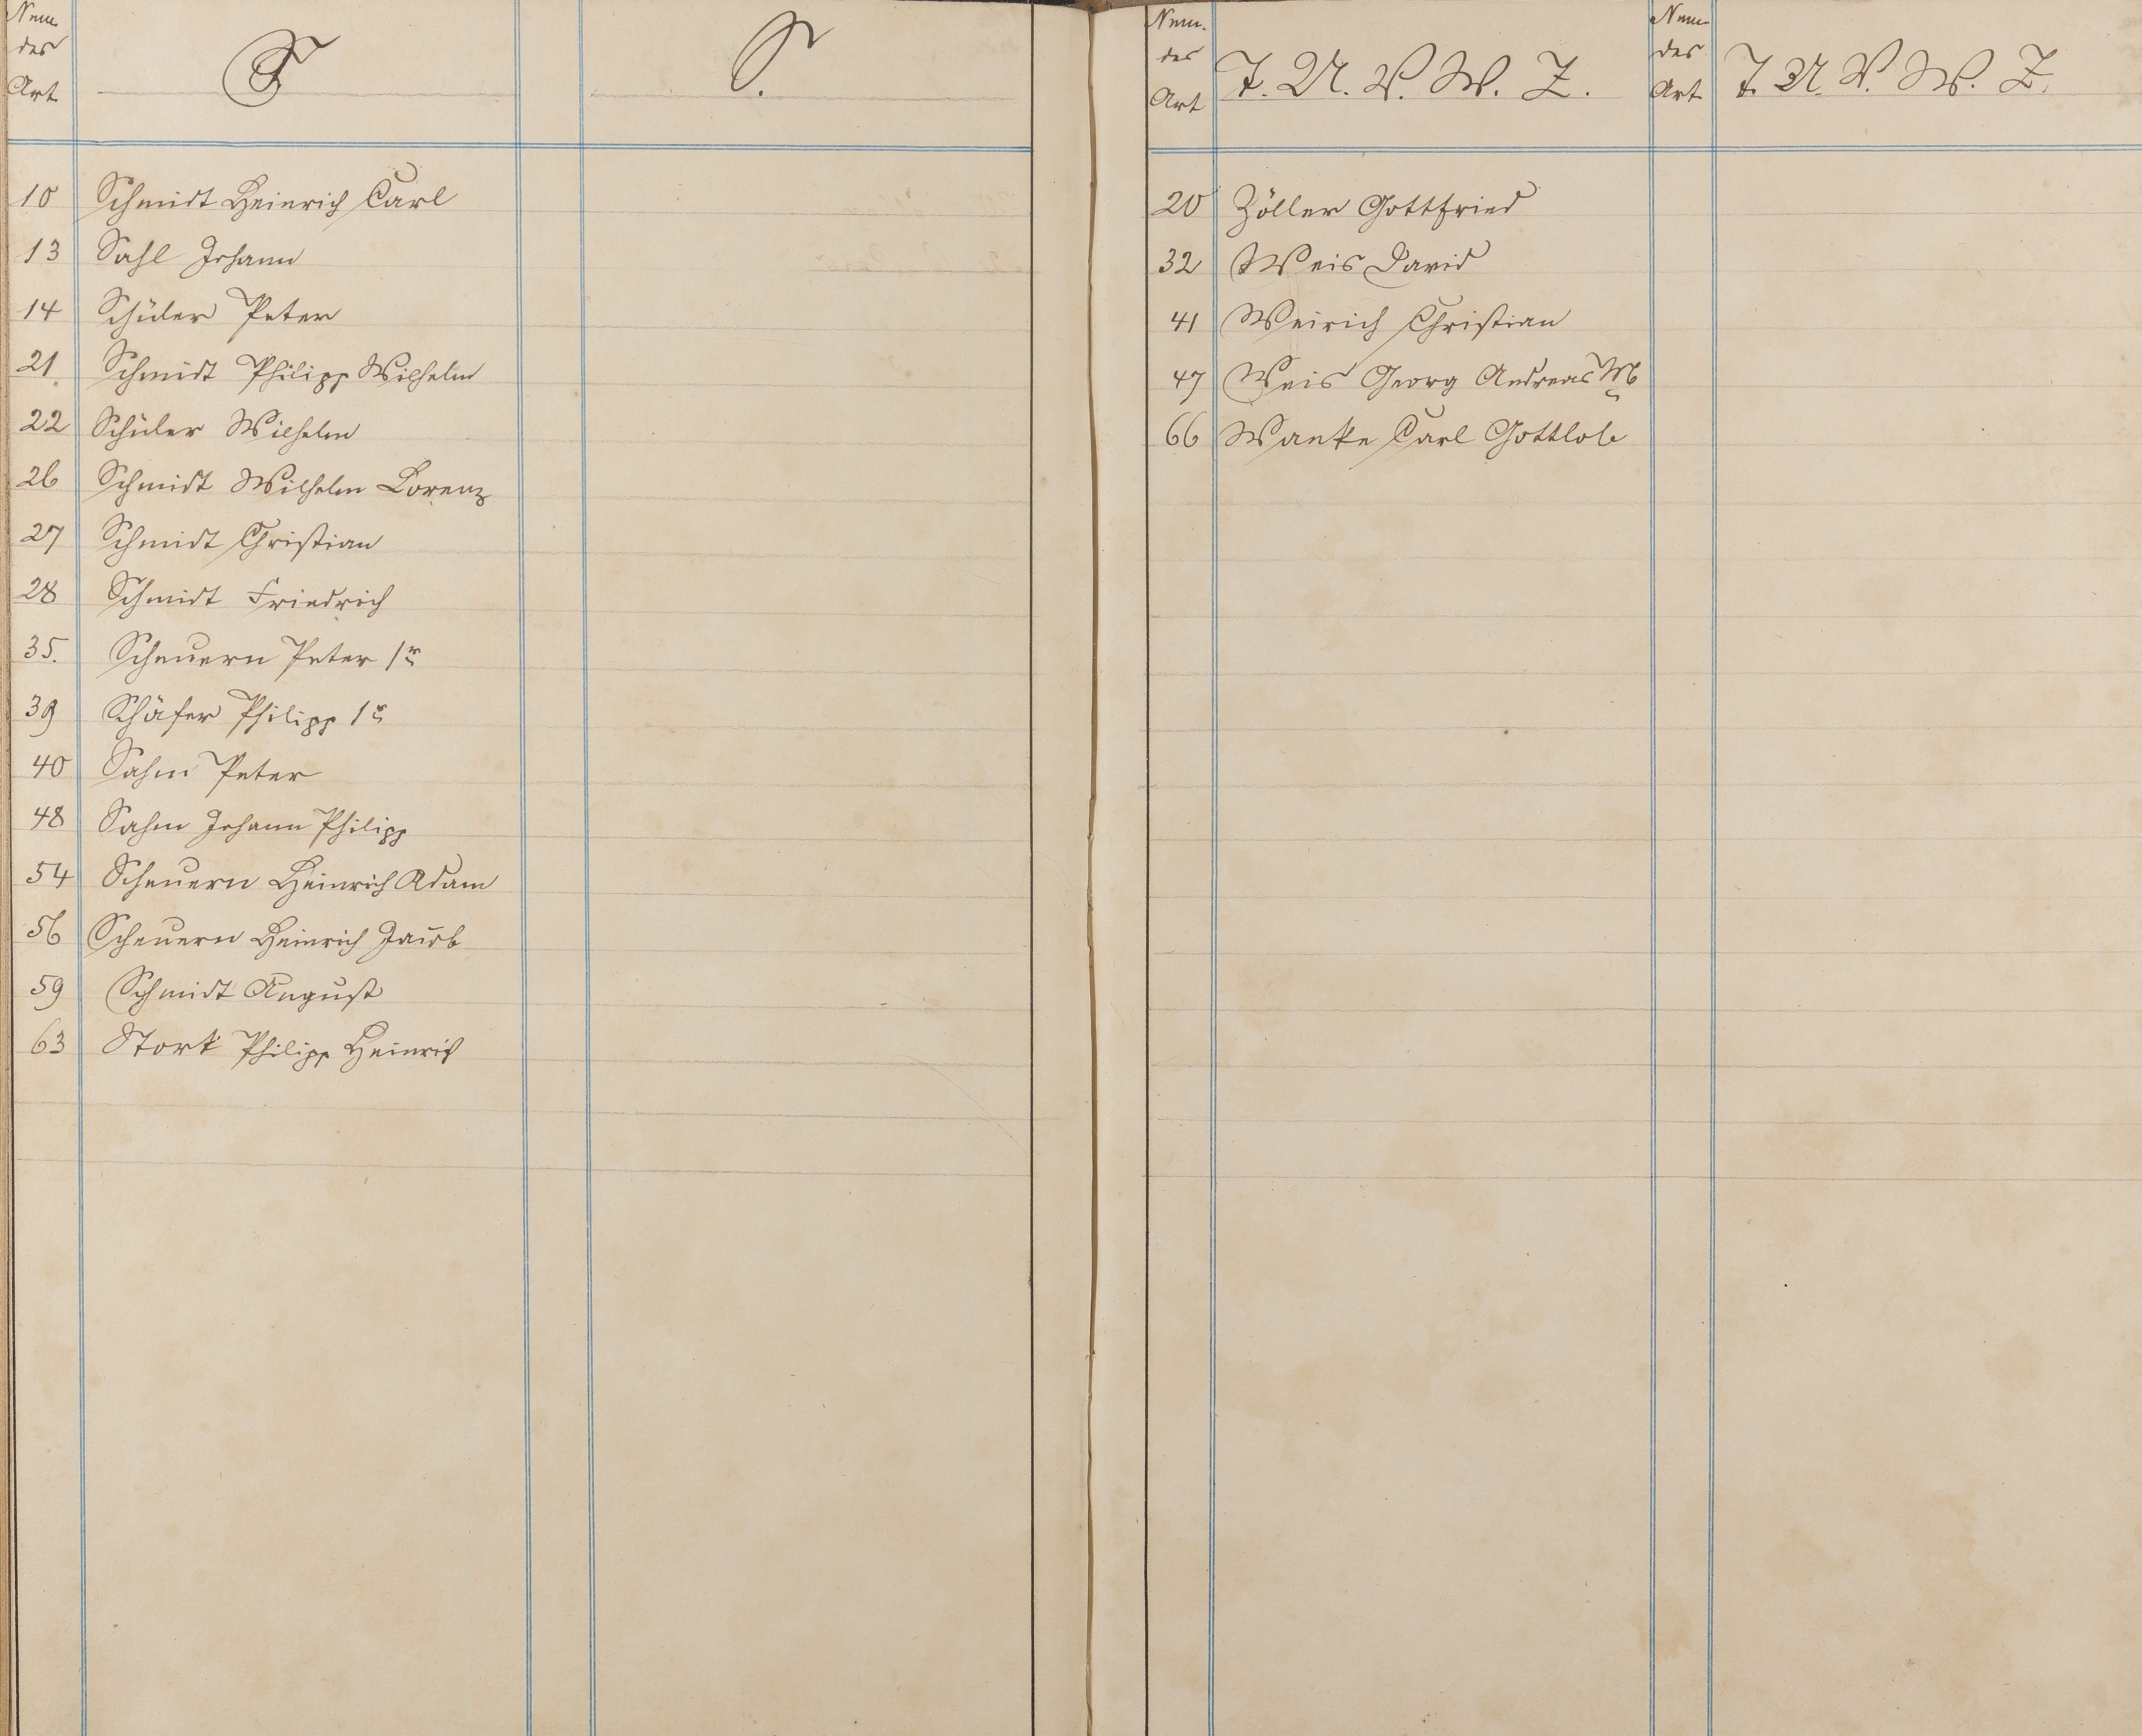 Num
des
Art
S
S.
10 Schmidt Heinrich Carl
13 Sahl Johann
14 Schüler Peter
21. Schmidt Philipp Wilhelm
22 Schüler Wilhelm
26 Schmidt Wilhelm Lorenz
27 Schmidt Christian
28 Schmidt Friedrich
35. Scheuern Peter 1r
39 Schäfer Philipp 1r
40 Sahm Peter
48 Sahm Johann Philipp
54 Scheuern Heinrich Adam
56 Scheuern Heinrich Jacob
59 Schmidt August
63 Stork Philipp Heinrich
Num.
des
Art
T. U. V. W. Z.
Num
des
Art
T. U. V. W. Z.
20 Zöller Gottfried
32 Weis David
41 Weirich Christian
47 Weis Georg Andreas
66 Wanke Carl Gottlob